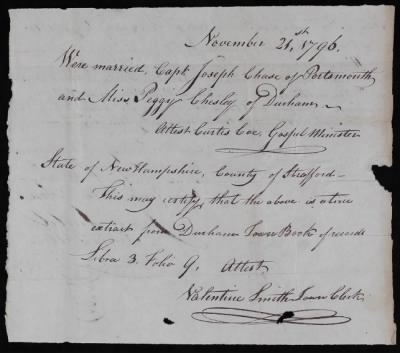 November 21st, 1796.
Were married, Capt Joseph Chase of Portsmouth
and Miss Peggy Chesley of Durham
Attest Curtis Coe, Gospel Minister
State of New Hampshire, County of Strafford—
This may certify, that the above is a true
extract from Durham Town Book of records
Libra 3. Folio 9, Attest,
Valentine Smith Town Clerk